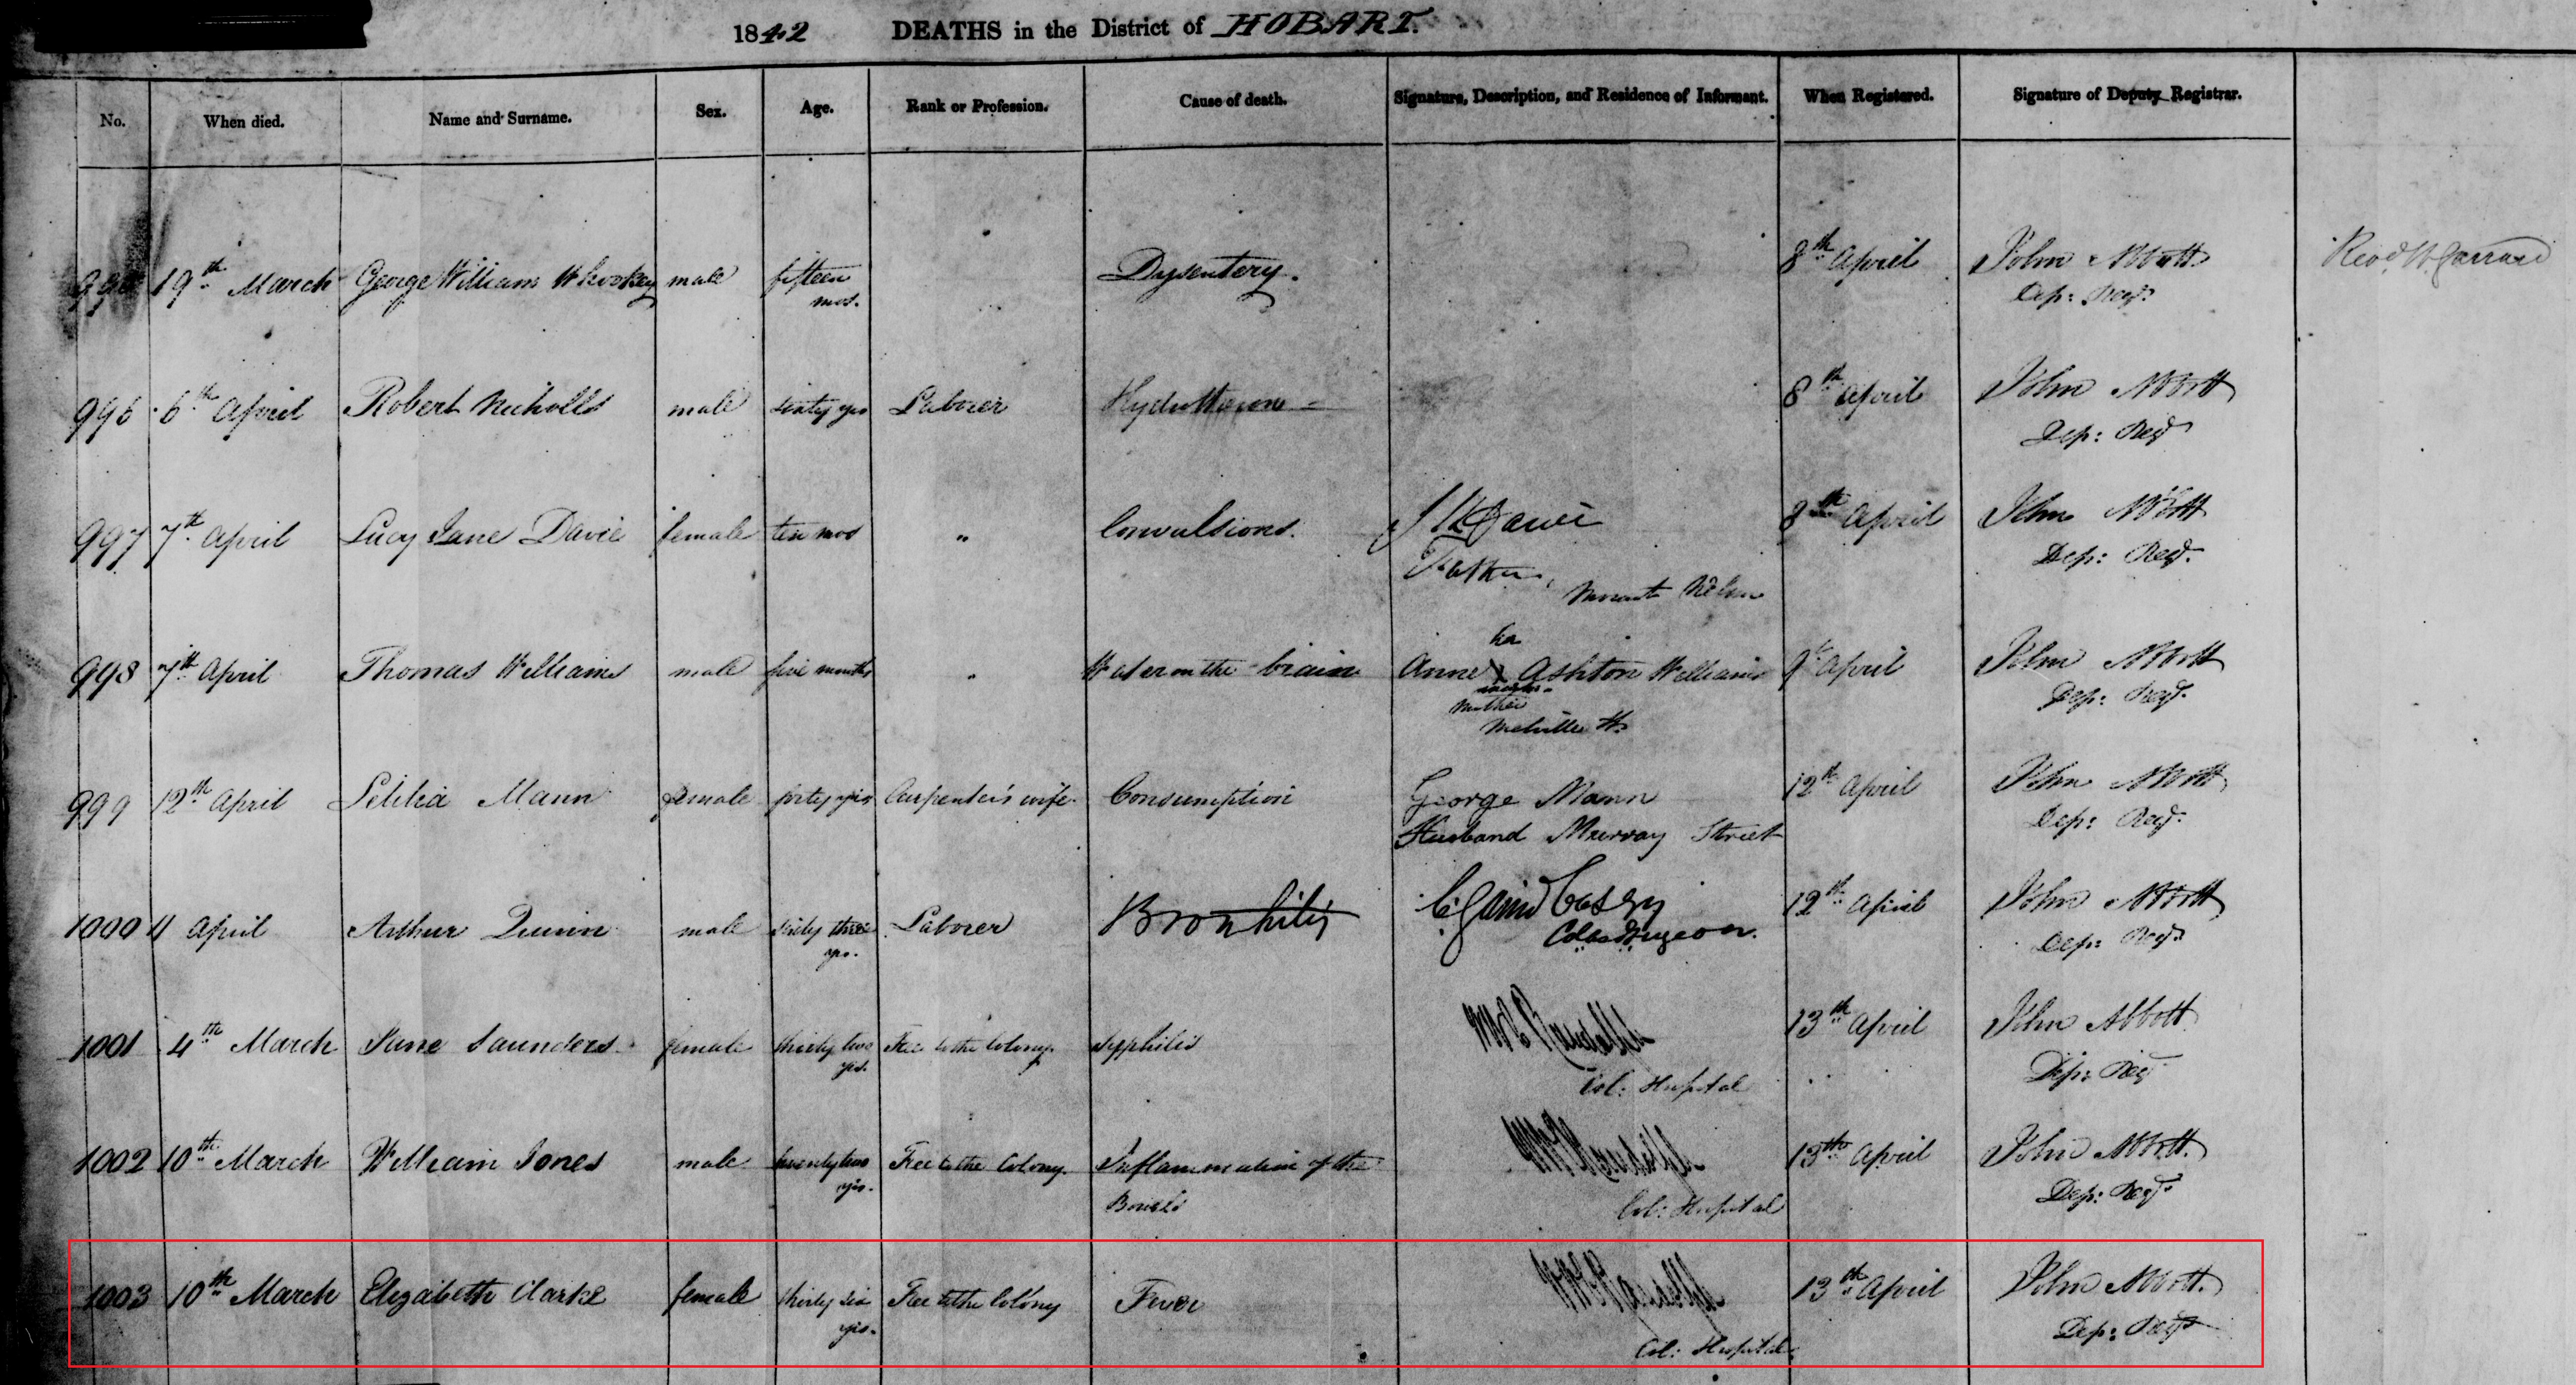 1842 DEATHS in the District of HOBART.
No. When died. Name and Surname. Sex. Age. Rank or Profession. Cause of death. Signature, Description, and Residence of Informant. When Registered. Signature of Deputy Registrar.
19th March George William male fifteen Dysentery. 8th April John Abbott
mos. Dep: Regr.
996 6th April Robert Nicholls male sixty yrs Laborer 8th April John Abbott
Dep: Regr
997 7th April Lucy Jane Davie female ten mos " Convulsions. Davie 8th April John Abbott
Father, Dep: Regr.
Mount Nelson
her
998 7th April Thomas Williams male five months " Water on the brain Anne X Ashton Williams 9th April John Abbott
mark Dep: Regr.
Mother
Melville St.
999 12th April Letitia Mann female forty yrs Carpenter's wife. Consumption George Mann 12th April John Abbott
Husband Murray Street Dep: Regr.
1000 11 April Arthur Quinn male sixty three Laborer Bronchitis Casey 12th April John Abbott
yrs. Col. Surgeon. Dep: Regr.
1001 4th March Jane Saunders female thirty two Free to the Colony. Syphilis 13th April John Abbott
yrs. Col: Hospital Dep: Reg
1002 10th March William Jones male twenty two Free to the Colony. Inflammation of the 13th April John Abbott.
yrs. Bowels Col: Hospital Dep: Regr
1003 10th March Elizabeth Clarke female thirty six Free to the Colony Fever 13th April John Abbott.
yrs. Col: Hospital Dep: Regr